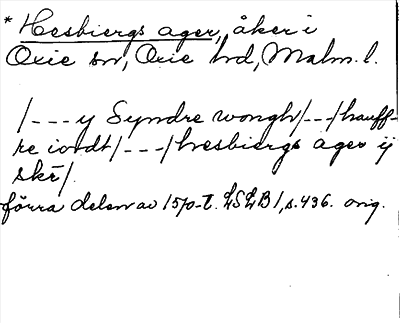 * Hesbiergs ager, åker i
Oxie sn, Oxie hd, Malm. l.
/--- y Syndre wongh/---/hauff-
re iordt/---/hesbiergs ager ij
skr̄/.
förra delen av 1570-t. LSLB 1, s. 436. orig.